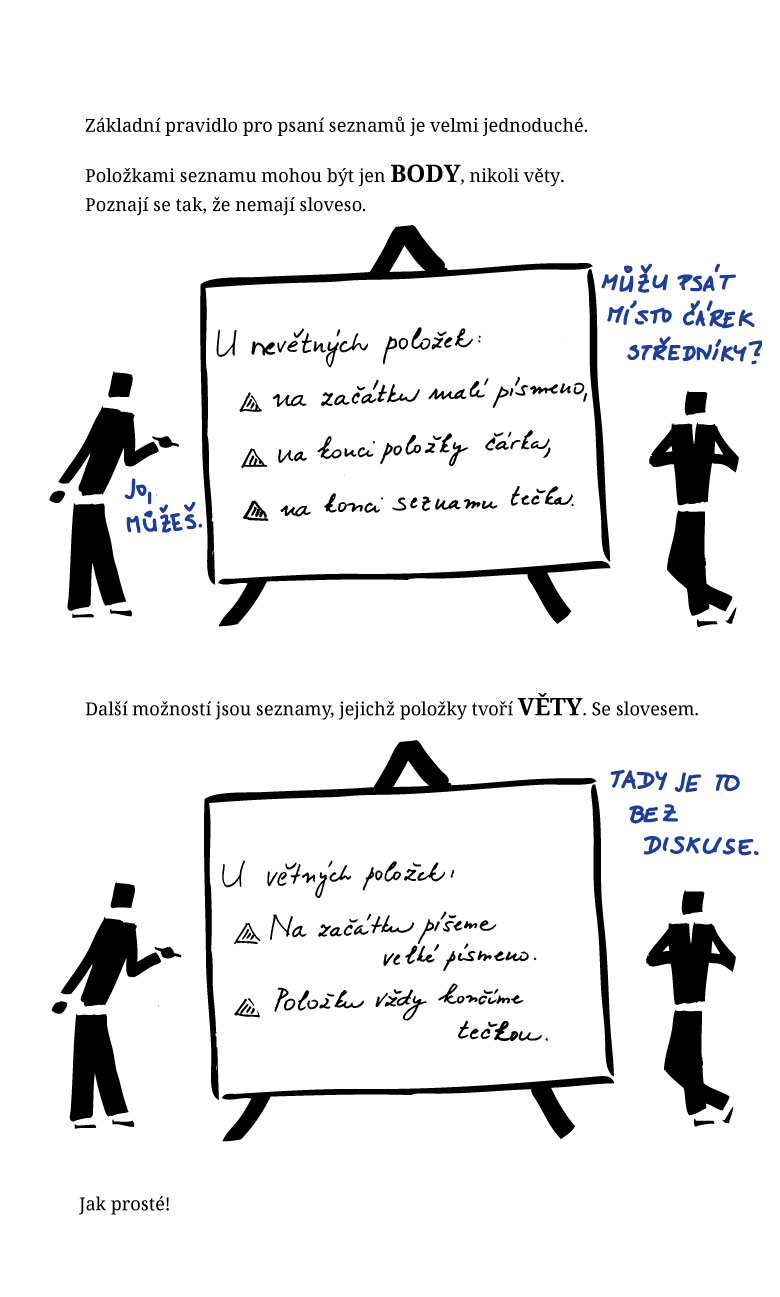 Základní pravidlo pro psaní seznamů je velmi jednoduché.
Položkami seznamu mohou být jen BODY, nikoli věty.
Poznají se tak, že nemají sloveso.
MŮŽU PSÁT
MÍSTO ČÁREK
STŘEDNÍKY?
U nevětných položek:
na začátku malé písmeno,
na konci položky čárka,
na konci seznamu tečka.
JO,
MŮŽEŠ.
Další možností jsou seznamy, jejichž položky tvoří VĚTY. Se slovesem.
TADY JE TO
BEZ
DISKUSE.
U větných položek:
Na začátku píšeme
velké písmeno.
Položku vždy končíme
tečkou.
Jak prosté!